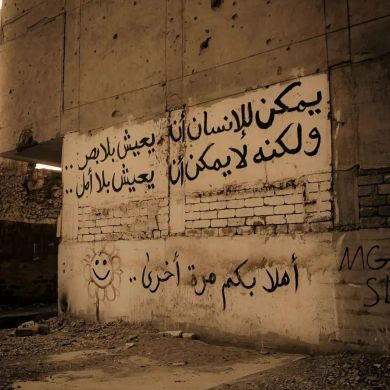 يمكن للإنسان أن يعيش بلا بصر ..
ولكنه لا يمكن أن يعيش بلا أمل ..
أهلا بكم مرة أخرى ..
MG